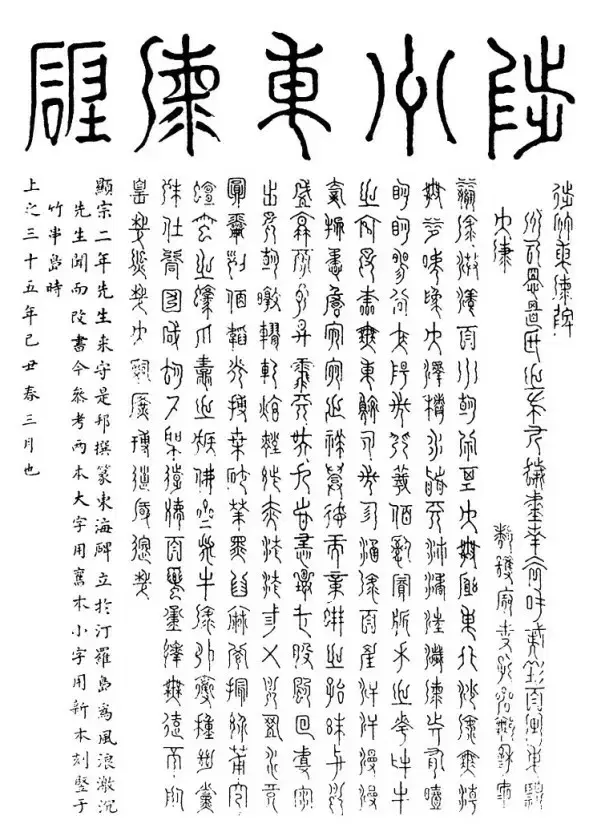 陟州東海碑
陟州東海碑
瀛海漭瀁百川朝宗其大無窮東北沙海無潮
無汐號爲大澤積水稽天浡潏汪濊海動有曀
明明暘谷太陽之門羲伯司賓析木之次牝牛
之宮日本無東蛟人之珍涵海百産汗汗漫漫
奇物譎詭宛宛之祥興德而章蚌之胎珠與月
盛虧旁氣昇霏天吳九首怪夔一股颷回且雨
出日朝暾轇軋炫煌紫赤滄滄三五月盈水鏡
圓靈列宿韜光扶桑沙華黑齒麻羅撮髻莆家
蜑蠻之蠔爪蛙之猴佛齊之牛海外雜種絶黨
殊俗同囿咸育古聖遠德百蠻重譯無遠不服
皇哉熙哉大治廣博遺風邈哉
顯宗二年先生來守是邦撰篆東海碑立於汀羅島爲風浪激沉
先生聞而改書今參考兩本大字用舊本小字用新本刻竪于
竹串島時
上之三十五年己丑春三月也